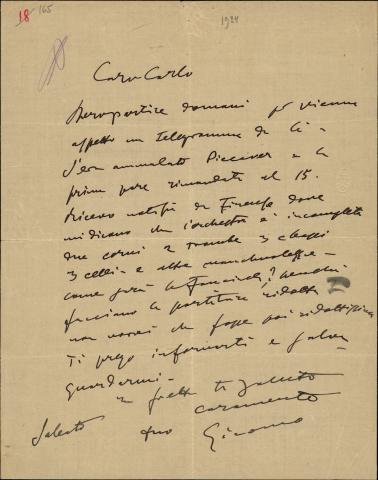 18 165
1924
Caro Carlo
Dero partire domani per Vienna
aspetto un telegramma da là -
S'era ammalato Piccaver e la
prima pare rimandata al 15.
Ricevo notizie da Firenze dove
mi dicono che l'orchestra è incompleta
due corni 2 trombe 3
3 celli e altre manchevolezze -
come farà la Fanciulla?
facciano la partitura ridotta
non vorrei che fosse poi ridottissima
Ti prego informarti e salva-
guardarmi -
in fretta ti saluto
caramente
Sabato tuo Giacomo